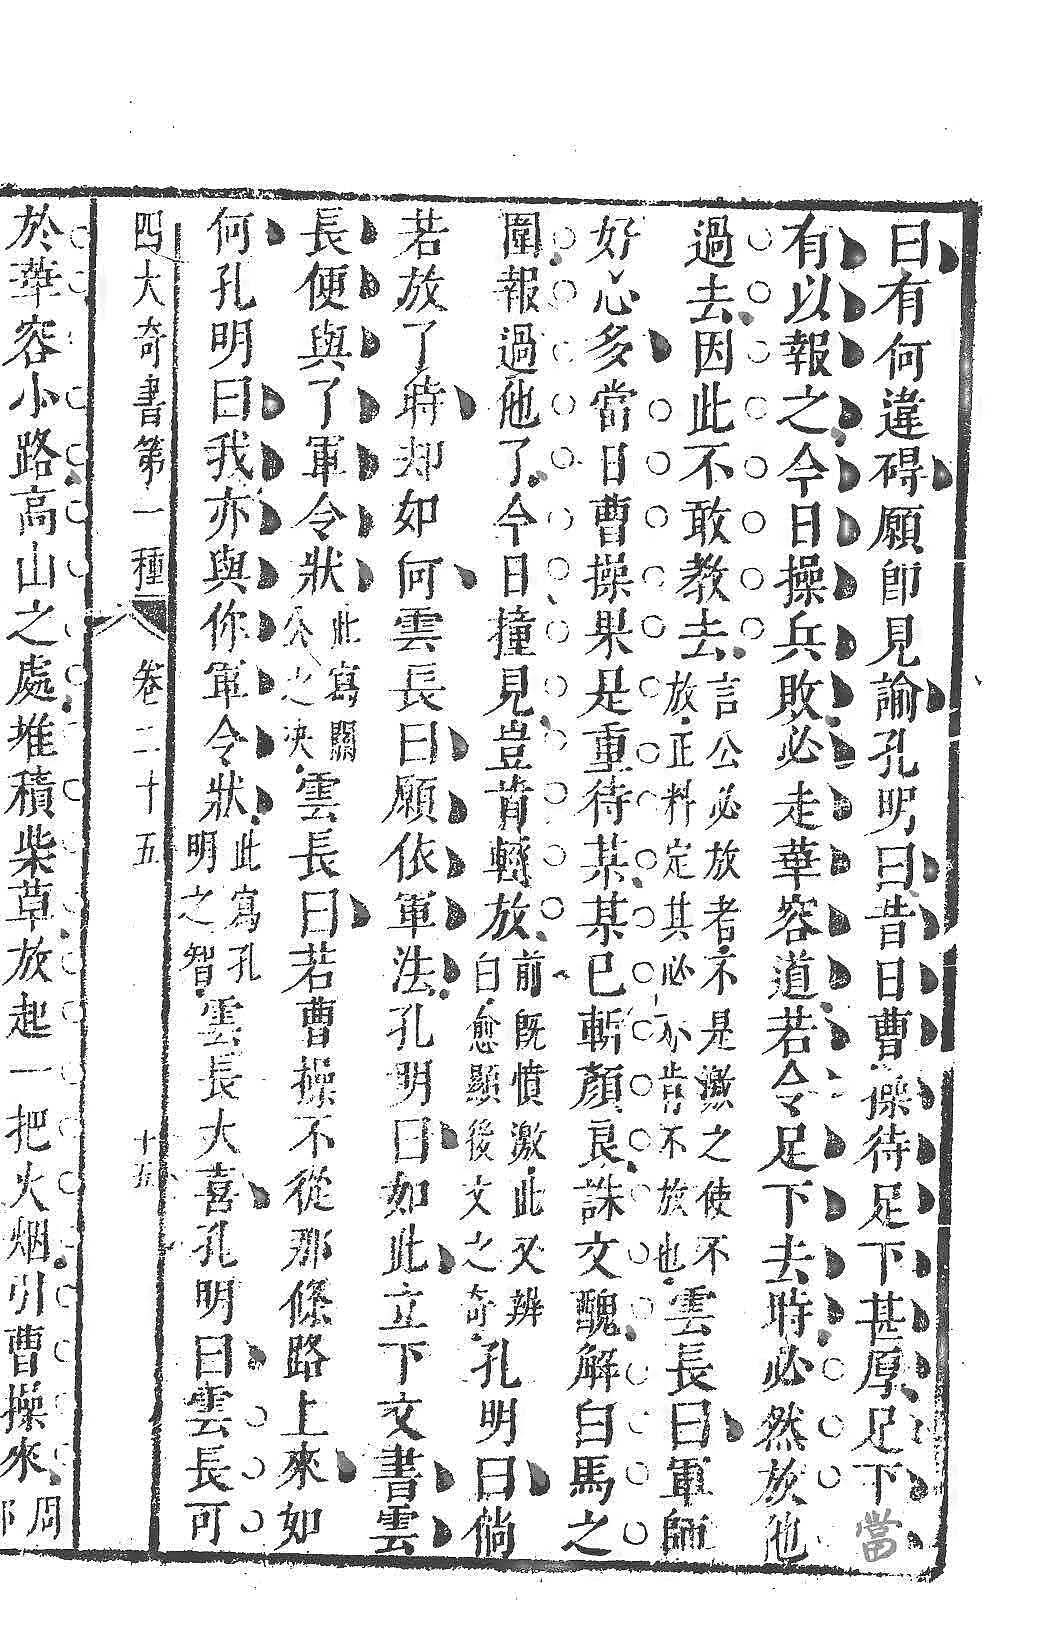 曰有何違碍願卽見諭孔明曰昔日曹操待足下甚厚足下當
有以報之今日操兵敗必走華容道若令足下去時必然放他
過去因此不敢教去言公必放者不是激之使不放正料定其必不肯不放也雲長曰軍師
好心多當日曹操果是重待某某已斬顏良誅文醜解白馬之
圍報過他了今日撞見豈肯輕放前旣憤激此又辨白愈顯後文之奇孔明曰倘
若放了時却如何雲長曰願依軍法孔明曰如此立下文書雲
長便與了軍令狀此寫關公之决雲長曰若曹操不從那條路上來如
何孔明曰我亦與你軍令狀此寫孔明之智雲長大喜孔明曰雲長可
四大奇書第一種 卷二十五 十五
於華容小路高山之處堆積柴草放起一把火烟引曹操來周郎